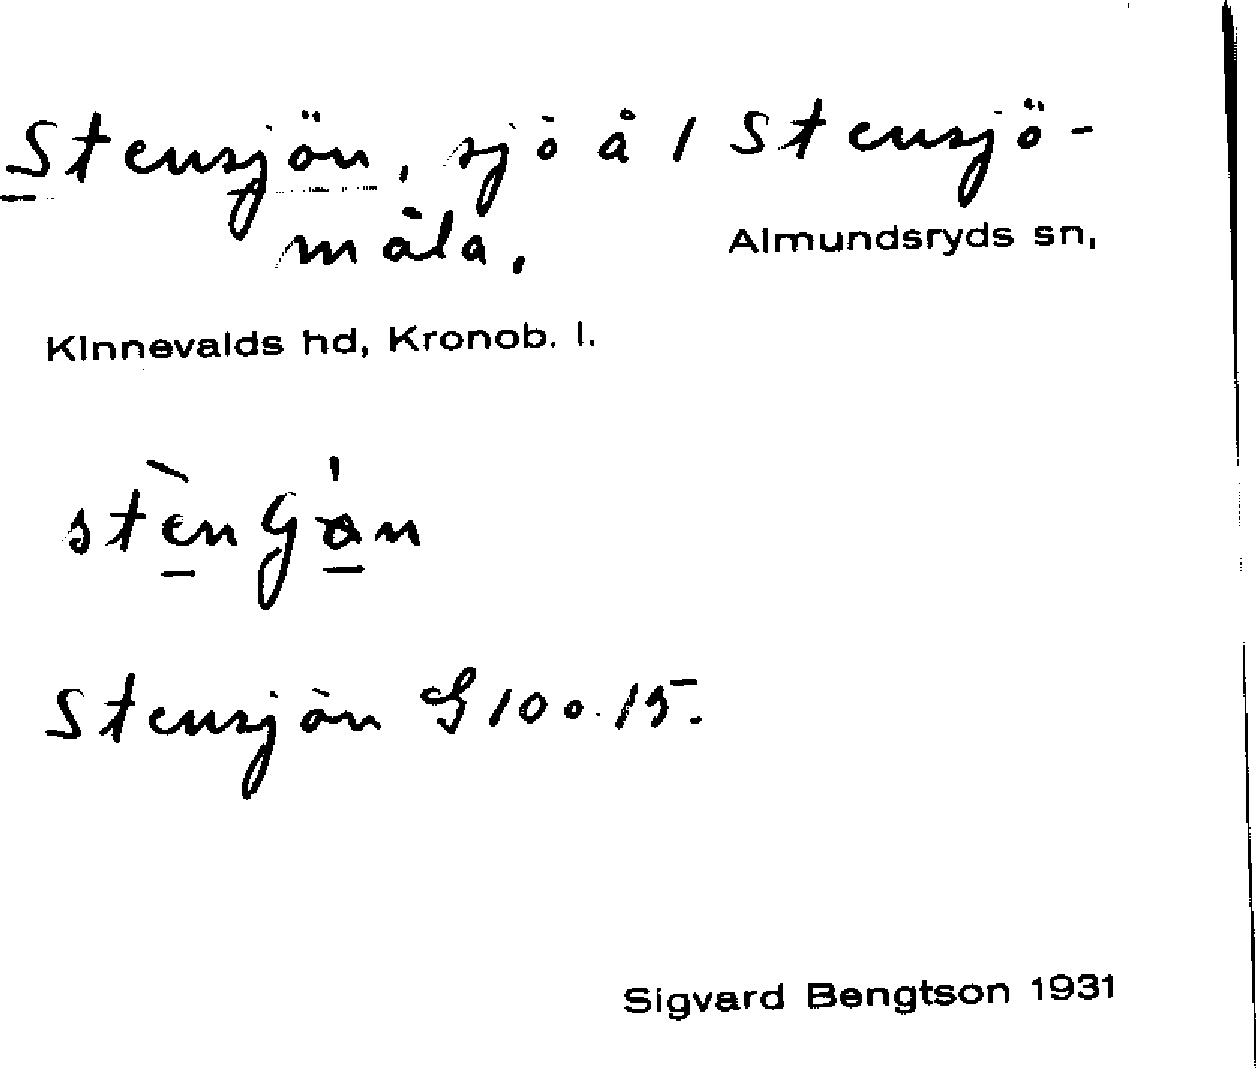 Stensjön, sjö å 1 Stensjö-
måla.
Almundsryds sn,
Kinnevalds hd, Kronob. l.
Stensjön G 100. 15.
Sigvard Bengtson 1931